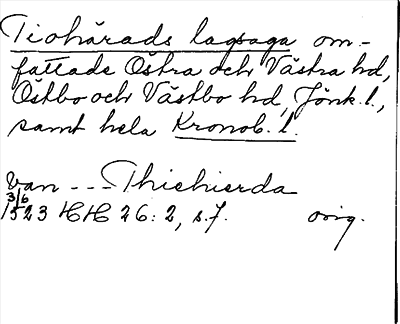 Tiohärads lagsaga om-
fattade Östra och Västra hd,
Östbo och Västbo hd, Jönk. l.,
samt hela Kronob. l.
van --- Thiehierda
3/6
1523 HH 26:2, s.7. orig.